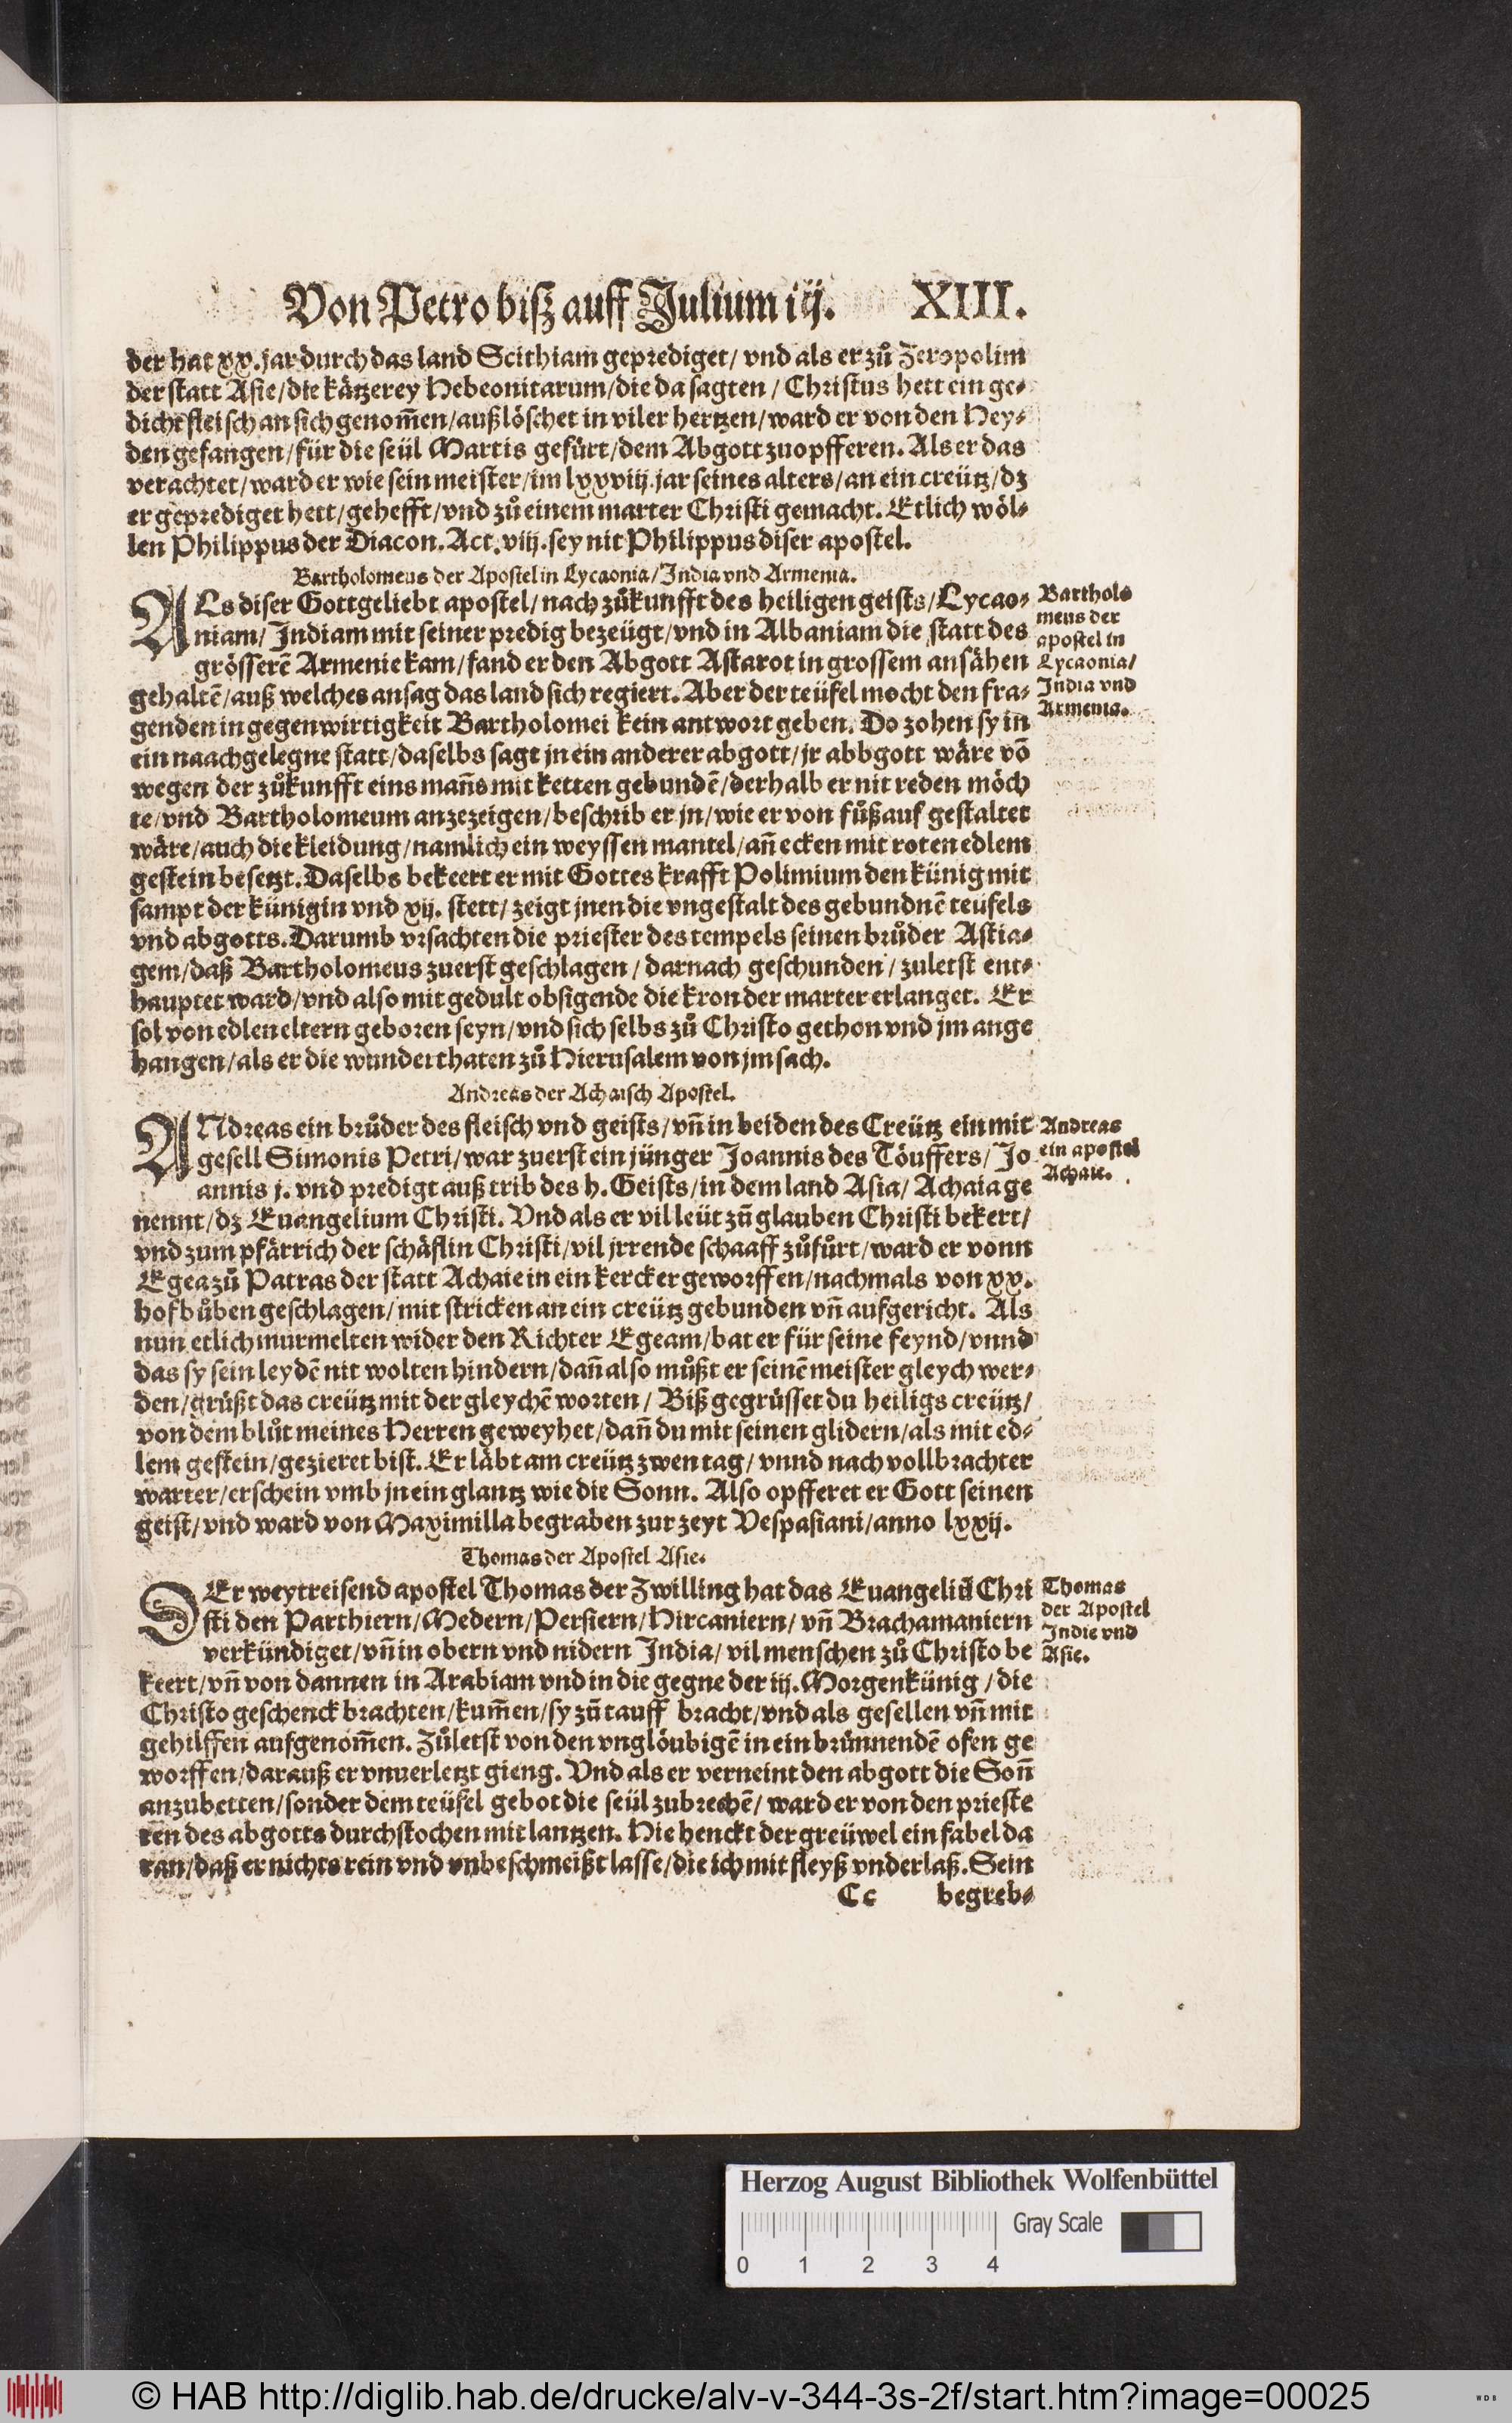 Von Petro biß auff Julium iij. XIII.
der hat xx. jar durch das land Scithiam geprediget/ vnd als er zů Jeropolim
der statt Asie/die kätzerey Hebeonitarum/die da sagten/ Christus hett ein ge-
dicht fleisch an sich genom̄en/außlöschet in viler hertzen/ward er von den Hey-
den gefangen/für die seül Martis gefürt/dem Abgott zuopfferen. Als er das
verachtet/ward er wie sein meister/im lxxviij.jar seines alters/an ein creütz/dz
er geprediget hett/gehefft/vnd zů einem marter Christi gemacht. Etlich wöl-
len Philippus der Diacon. Act. viij. sey nit Philippus diser apostel.
Bartholomeus der Apostel in Lycaonia/India vnd Armenia.
ALs diser Gottgeliebt apostel/nach zůkunfft des heiligen geists/Lycao-
niam/ Indiam mit seiner predig bezeügt/vnd in Albaniam die statt des
grösserē Armenie kam/fand er den Abgott Astarot in grossem ansähen
gehaltē/auß welches ansag das land sich regiert. Aber der teüfel mocht den fra-
genden in gegenwirtigkeit Bartholomei kein antwort geben. Do zohen sy in
ein naachgelegne statt/daselbs sagt jn ein anderer abgott/jr abbgott wäre vō
wegen der zůkunfft eins man̄s mit ketten gebundē/derhalb er nit reden möch
te/vnd Bartholomeum anzezeigen/beschrib er jn/wie er von fůß auf gestaltet
wäre/auch die kleidung/namlich ein weyssen mantel/an̄ ecken mit roten edlem
gestein besetzt. Daselbs bekeert er mit Gottes krafft Polimium den künig mit
sampt der künigin vnd xij. stett/ zeigt jnen die vngestalt des gebundnē teüfels
vnd abgotts. Darumb vrsachten die priester des tempels seinen brůder Astia-
gem/daß Bartholomeus zuerst geschlagen/ darnach geschunden/ zuletst ent-
hauptet ward/vnd also mit gedult obsigende die kron der marter erlanget. Er
sol von edlen eltern geboren seyn/vnd sich selbs zů Christo gethon vnd jm ange
hangen/als er die wunderthaten zů Hierusalem von jm sach.
Bartholo
meus der
apostel in
Lycaonia/
India vnd
Armenia.
Andreas der Achaisch Apostel.
ANdreas ein brůder des fleisch vnd geists/vn̄ in beiden des Creütz ein mit
gesell Simonis Petri/war zuerst ein jünger Joannis des Töuffers/ Jo
annis j. vnd predigt auß trib des h. Geists/in dem land Asia/ Achaia ge
nennt/dz Euangelium Christi. Vnd als er vil leüt zū glauben Christi bekert/
vnd zum pfärrich der schäflin Christi/vil jrrende schaaff zůfůrt/ward er vonn
Egea zů Patras der statt Achaie in ein kercker geworffen/nachmals von xx.
hofbůben geschlagen/mit stricken an ein creütz gebunden vn̄ aufgericht. Als
nun etlich murmelten wider den Richter Egeam/bat er für seine feynd/vnnd
das sy sein leydē nit wolten hindern/dan̄ also můßt er seinē meister gleych wer-
den/grüßt das creütz mit der gleychē worten/ Biß gegrüsset du heiligs creütz/
von dem blůt meines Herren geweyhet/dan̄ du mit seinen glidern/als mit ed-
lem gestein/gezieret bist. Er läbt am creütz zwen tag/ vnnd nach vollbrachter
warter/erschein vmb jn ein glantz wie die Sonn. Also opfferet er Gott seinen
geist/vnd ward von Maximilla begraben zur zeyt Vespasiani/anno lxxij.
Andreas
ein apostel
Achaie.
Thomas der Apostel Asie.
DEr weytreisend apostel Thomas der Zwilling hat das Euangeliū Chri
sti den Parthiern/Medern/Persiern/Hircaniern/ vn̄ Brachamaniern
verkündiget/vn̄ in obern vnd nidern India/ vil menschen zů Christo be
keert/vn̄ von dannen in Arabiam vnd in die gegne der iij. Morgenkünig/die
Christo geschenck brachten/kum̄en/sy zū tauff bracht/vnd als gesellen vn̄ mit
gehilffen aufgenom̄en. Zůletst von den vnglöubigē in ein brünnendē ofen ge
worffen/darauß er vnuerletzt gieng. Vnd als er verneint den abgott die Son̄
anzubetten/sonder dem teüfel gebot die seül zubrechē/ ward er von den prieste
ren des abgotts durchstochen mit lantzen. Hie henckt der greüwel ein fabel da
ran/daß er nichts rein vnd vnbeschmeißt lasse/die ich mit fleyß vnderlaß. Sein
Thomas
der Apostel
Indie vnd
Asie.
Cc begreb-
Herzog August Bibliothek Wolfenbüttel
Gray Scale
0 1 2 3 4
© HAB http://diglib.hab.de/drucke/alv-v-344-3s-2f/start.htm?image=00025
WDB